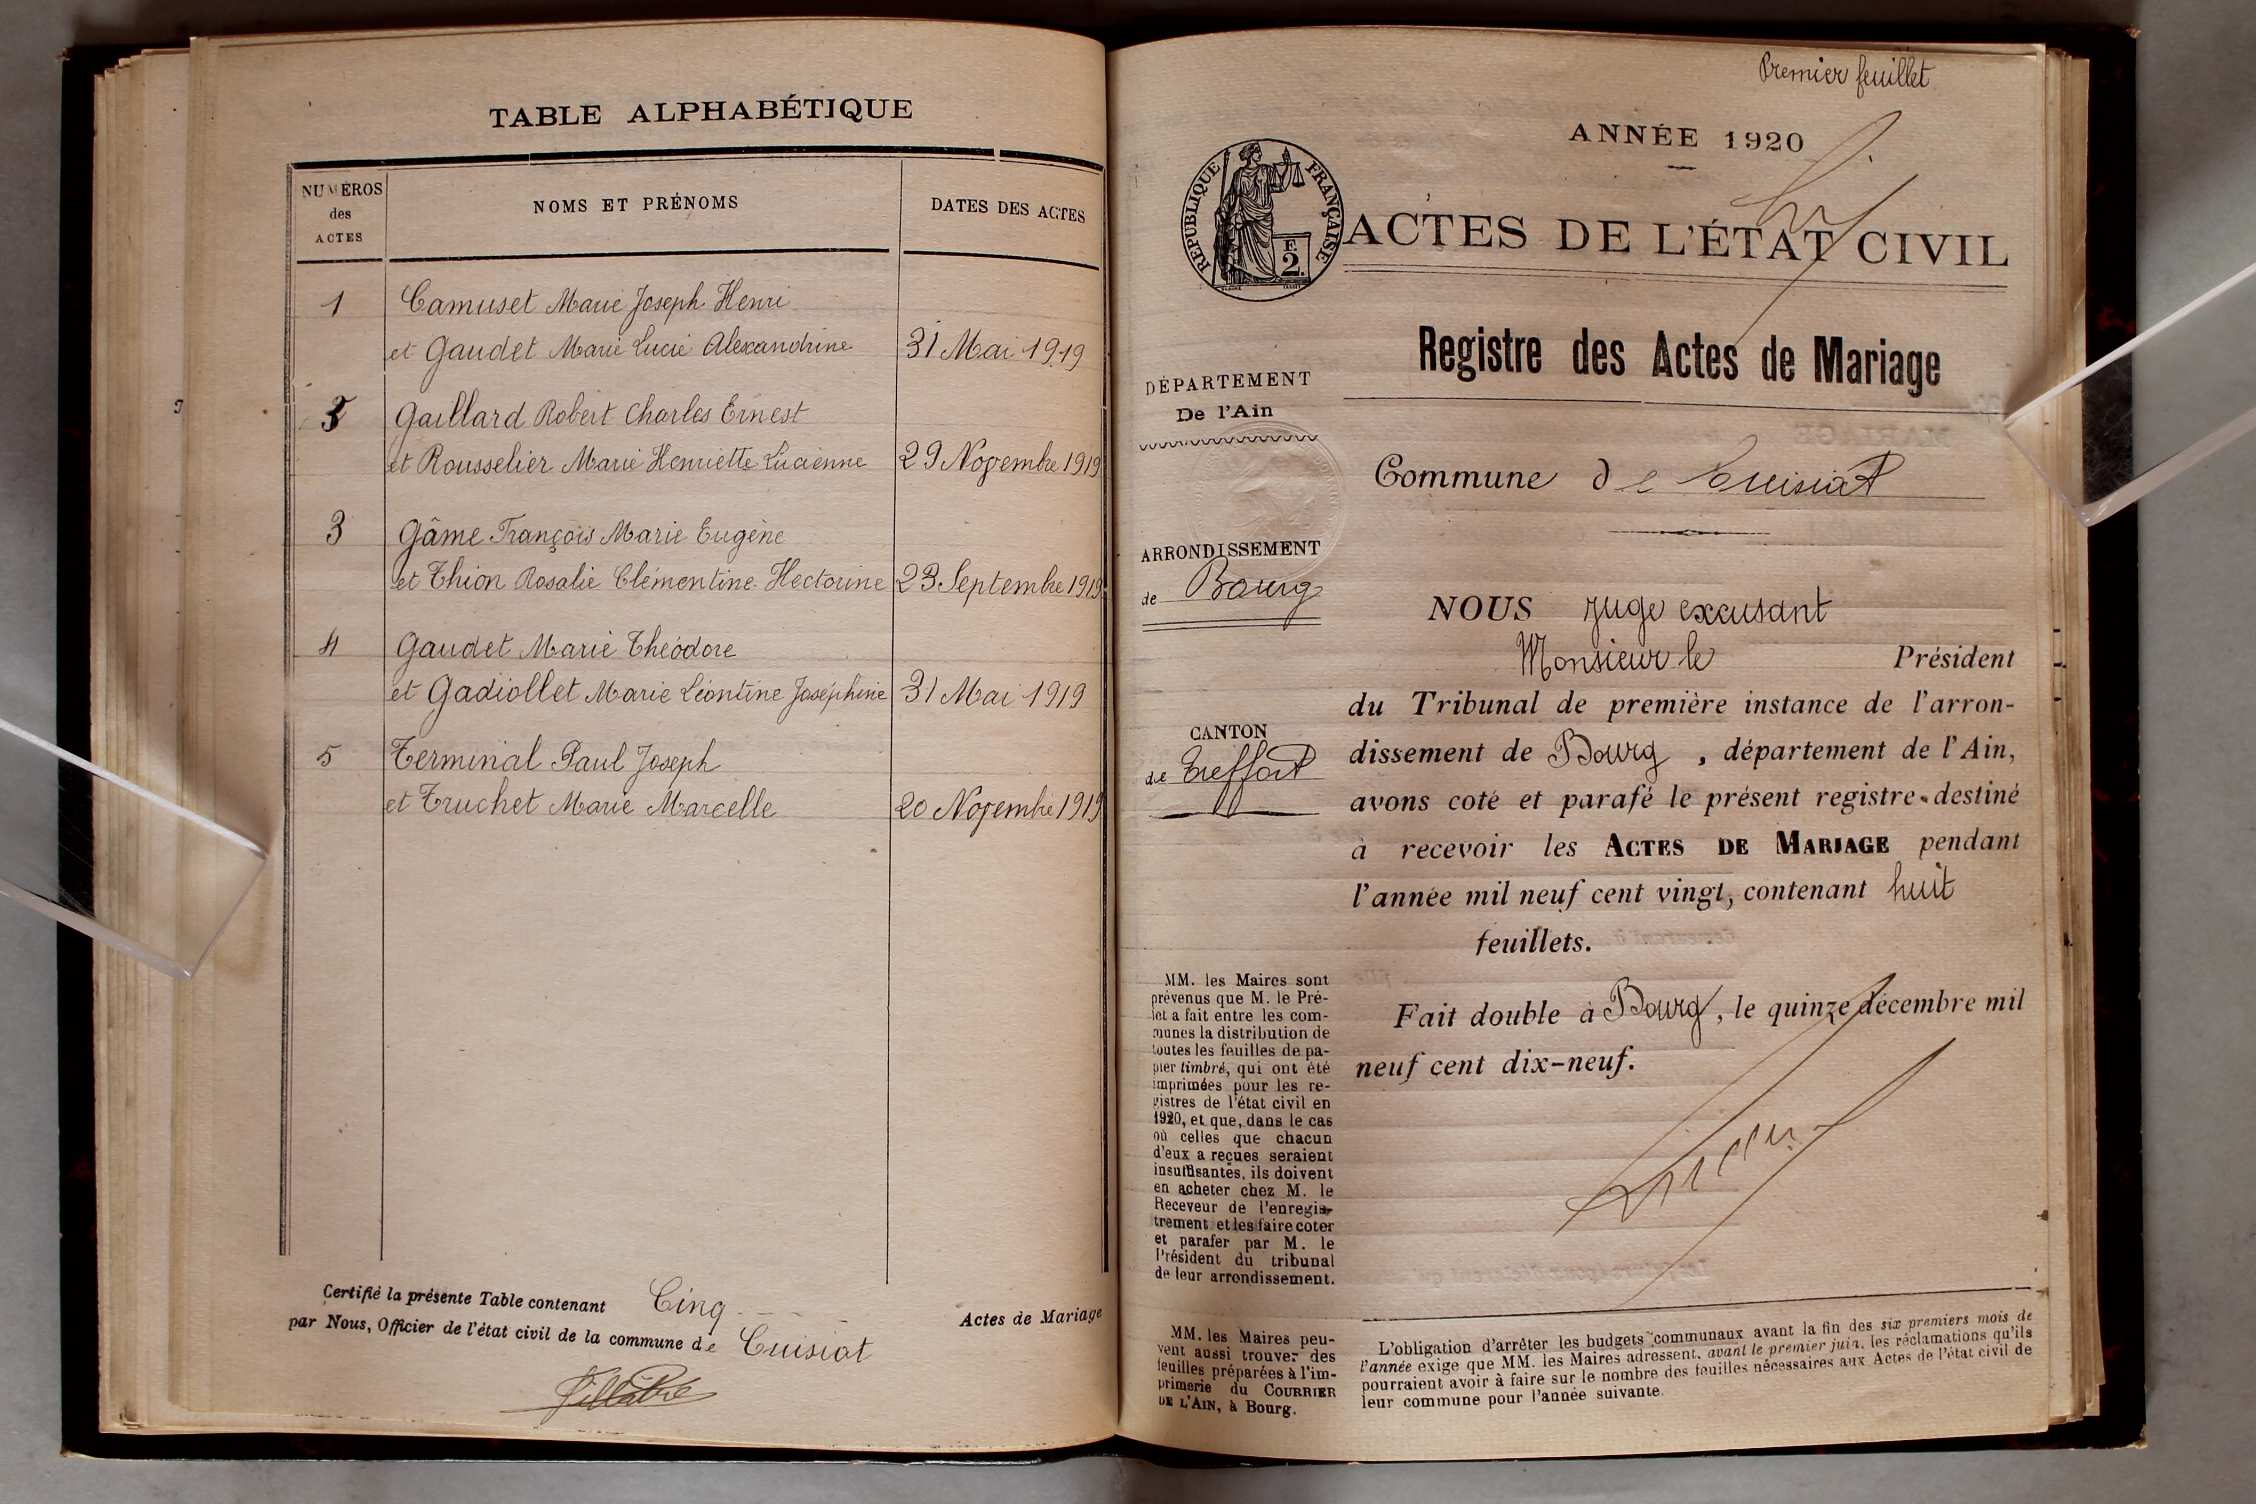 TABLE ALPHABÉTIQUE
NUMÉROS
des
ACTES
NOMS ET PRÉNOMS
DATES DES ACTES
1 Camuset Marie Joseph Henri
et Gaudet Marie Lucie Alexandrine 31 Mai 1919
Gaillard Robert Charles Ernest
et Rousselier Marie Henriette Lucienne 29 Novembre 1919
3 Gâme François Marie Eugène
et Thion Rosalie Clémentine Hectorine 23 Septembre 1919
4 Gaudet Marie Théodore
et Gadiollet Marie Léontine Joséphine 31 Mai 1919
5 Terminal Paul Joseph
et Truchet Marie Marcelle 20 Novembre 1919
Certifié la présente Table contenant Cinq Actes de Mariage
par Nous, Officier de l'état civil de la commune de Cuisiat
Premier feuillet
ANNÉE 1920
RÉPUBLIQUE FRANÇAISE
F.
2.
ACTES DE L'ÉTAT CIVIL
Registre des Actes de Mariage
DÉPARTEMENT
De l'Ain
ARRONDISSEMENT
de Bourg
CANTON
de Treffort
MM. les Maires sont
prévenus que M. le Pré-
fet a fait entre les com-
munes la distribution de
toutes les feuilles de pa-
pier timbré, qui ont été
imprimées pour les re-
gistres de l'état civil en
1920, et que, dans le cas
où celles que chacun
d'eux a reçues seraient
insuffisantes, ils doivent
en acheter chez M. le
Receveur de l'enregis-
trement et les faire coter
et parafer par M. le
Président du tribunal
de leur arrondissement.
MM. les Maires peu-
vent aussi trouver des
feuilles préparées à l'im-
primerie du COURRIER
DE L'AIN, à Bourg.
Commune de Cuisiat
NOUS Juge excusant
Monsieur le Président
du Tribunal de première instance de l'arron-
dissement de Bourg, département de l'Ain,
avons coté et parafé le présent registre destiné
à recevoir les ACTES DE MARIAGE pendant
l'année mil neuf cent vingt, contenant huit
feuillets.
Fait double à Bourg, le quinze décembre mil
neuf cent dix-neuf.
L'obligation d'arrêter les budgets communaux avant la fin des six premiers mois de
l'année exige que MM. les Maires adressent, avant le premier juin, les réclamations qu'ils
pourraient avoir à faire sur le nombre des feuilles nécessaires aux Actes de l'état civil de
leur commune pour l'année suivante.